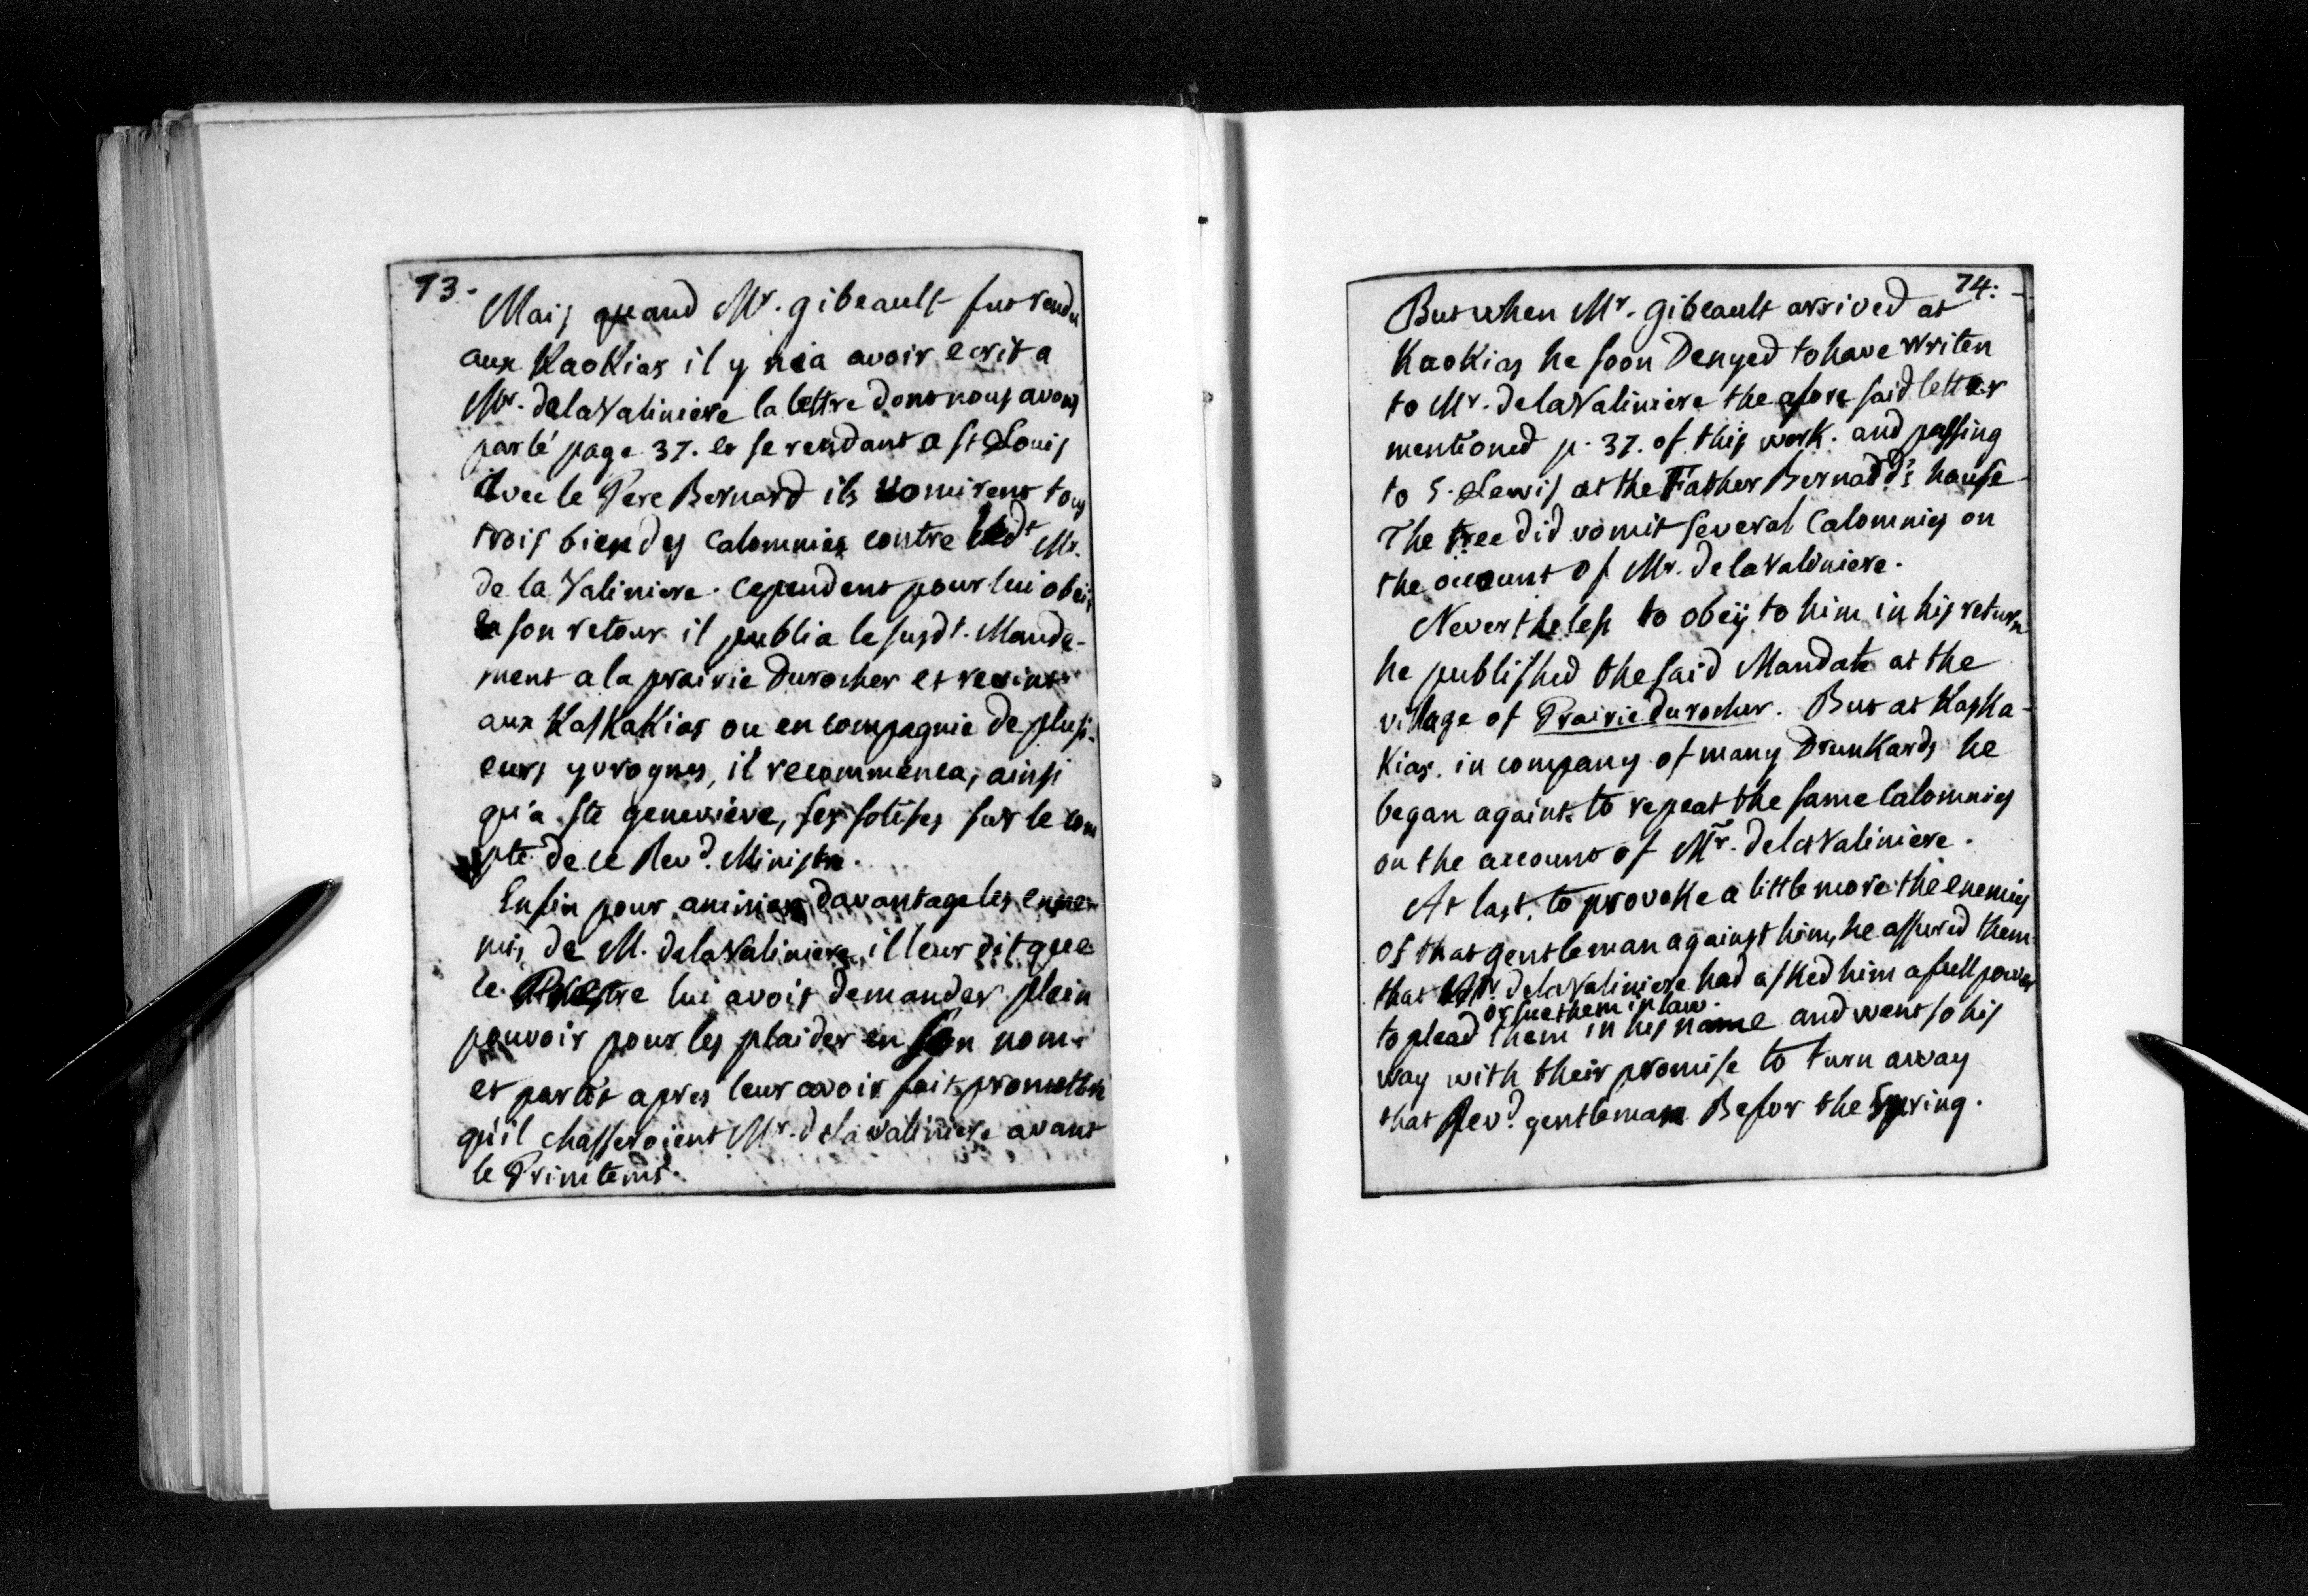 73.
Mais quand Mr. gibeault fut rendu
aux KaoKias il y nia avoir ecrit a
Mr. delaValiniere la lettre dont nous avons
parlé page 37. et se rendant a St Louis
avec le Pere Bernard ils vomirent tous
trois bien des Calomnies contre ledt Mr.
de la Valiniere. Cependent pour lui obeir
a son retour il publia le susdt. Mande-
ment a la prairie Durocher et revint
aux KasKaKias ou en compagnie de plusi-
eurs yvrognes, il recommenca, ainsi
qu'a Ste genevieve, ses sotises sur le com
pte de ce Revd. Ministre.
Enfin pour animer davantage les enne-
mis de M. delaValiniere, il leur dit que
le Prestre lui avoit demander plein
pouvoir pour les plaider en son nom
et partit apres leur avoir fait promettre
qu'il chasseroient Mr. delavaliniere avant
le Primtems.
74.
But when Mr. Gibeault arrived at
KaoKias he soon Denyed to have writen
to Mr. delaValiniere the afore said letter
mentioned p. 37. of this work. and passing
to S. Lewis at the Father Bernard's house
The tree did vomit several Calomnies on
the account of Mr. delaValiniere.
Nevertheless to obeÿ to him in his return
he published the said Mandate at the
village of Prairie durocher. But at KasKa-
Kias. in company of many DrunKards he
began againt to repeat the same Calomnies
on the account of Mr. delaValiniere.
At last, to provoke a little more the enemies
of that gentleman against him, he assured them
that Mr. delaValiniere had asked him a full power
or sue them in law.
to plead them in his name and went so his
way with their promise to turn away
that Revd. gentleman Befor the Spring.